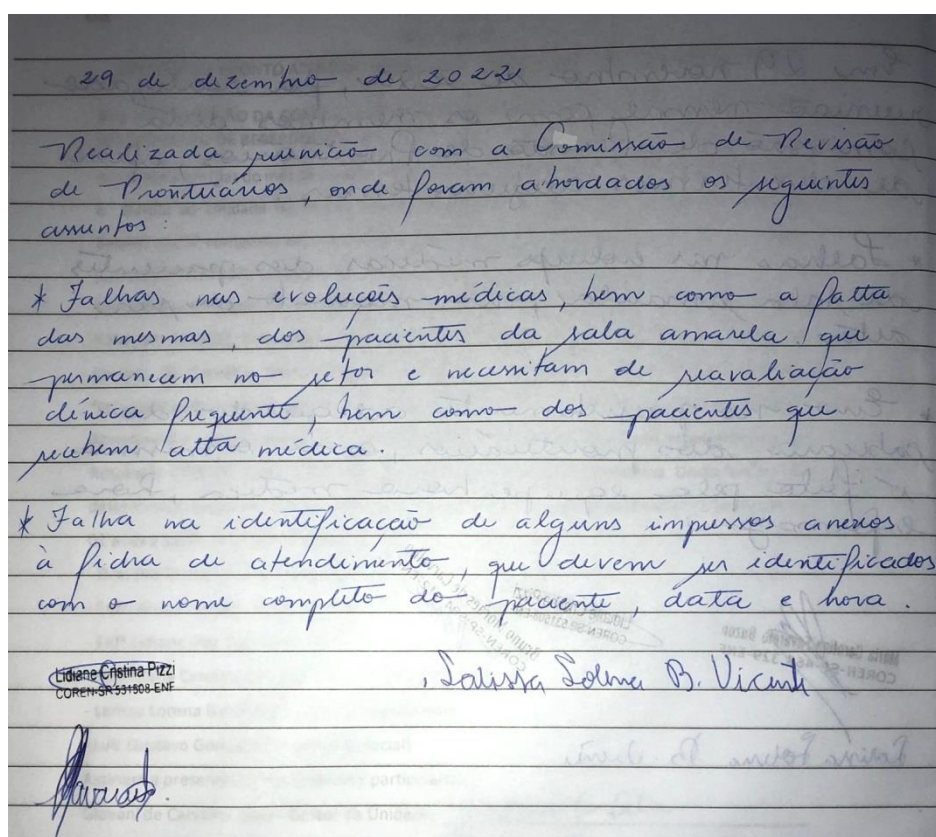 29 de dezembro de 2022
Realizada reunião com a Comissão de Revisão
de Prontuários, onde foram abordados os seguintes
assuntos:
* Falhas nas evoluções médicas, bem como a falta
das mesmas, dos pacientes da sala amarela que
permanecem no setor e necessitam de reavaliação
clínica frequente, bem como dos pacientes que
recebem alta médica.
* Falha na identificação de alguns impressos anexos
à ficha de atendimento, que devem ser identificados
com o nome completo do paciente, data e hora.
Lidiane Cristina Pizzi
COREN-SP 531508-ENF
B. Vicente